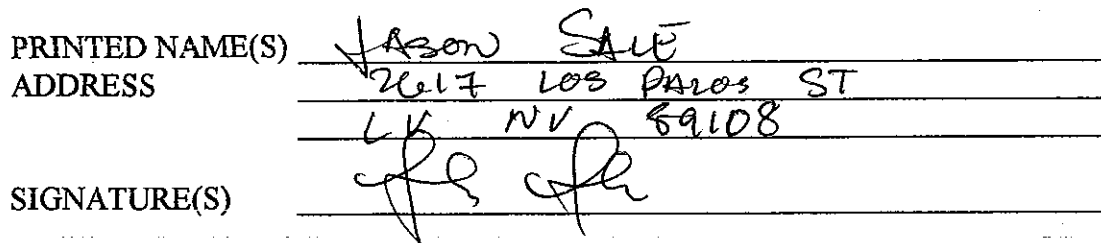 PRINTED NAME(S) JASON SALE
ADDRESS 2617 LOS PALOS ST
LV NV 89108
SIGNATURE(S)